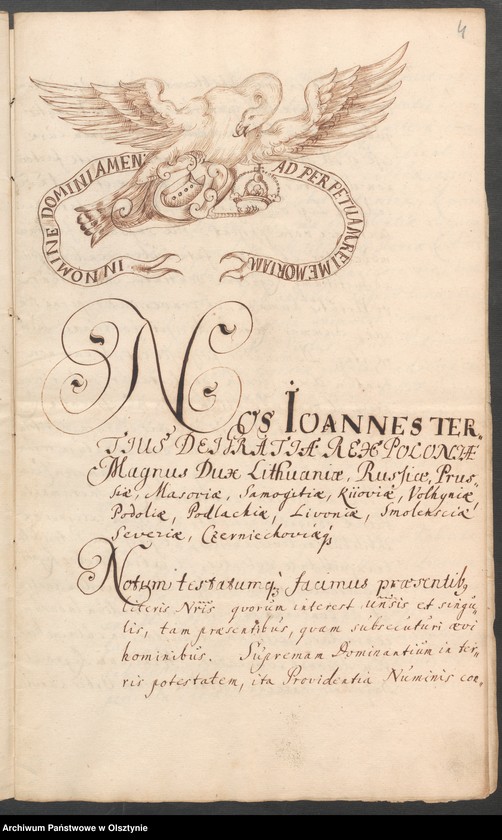 4
IN NOMINE DOMINI AMEN
AD PERPETUAM REI MEMORIAM
NOS IOANNES TER-
TIUS DEI GRATIÆ REX POLONIÆ
Magnus Dux Lithuaniæ, Russiæ, Prus-
siæ, Masoviæ, Samogitiæ, Kijoviæ, Volhyniæ
Podoliæ, Podlachiæ, Livoniæ, Smolensciæ
Severiæ, Czerniechoviæq;
Notum testatumq; facimus præsentib;
literis Nriis quorum interest unsis et singu
lis, tam præsentibus, quam subsecuturi ævi
hominibus. Supremam Dominantium in ter-
ris potestatem, ita Providentia Numinis con-
Archiwum Państwowe w Olsztynie